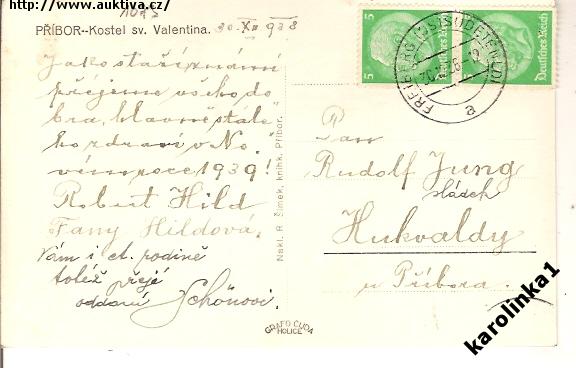 http://www.auktiva.cz/
PŘÍBOR--Kostel sv. Valentina. 30 XII 938
Jako staří známí
přejeme všeho do
bra, hlavně stálé
ho zdraví v No
vém roce 1939!
Robert Hild
Fany Hildová.
Vám i ct. rodině
totéž přejí
oddaní Schönovi.
Nakl. R. Šimek, knihk. Příbor.
GRAFO ČUDA
HOLICE
5 Deutsches Reich 5
5 Deutsches Reich
FREIBERG (OSTSUDETENLD)
a
Pan
Rudolf Jung
sládek
Hukvaldy
u Příbora.
karolinka1